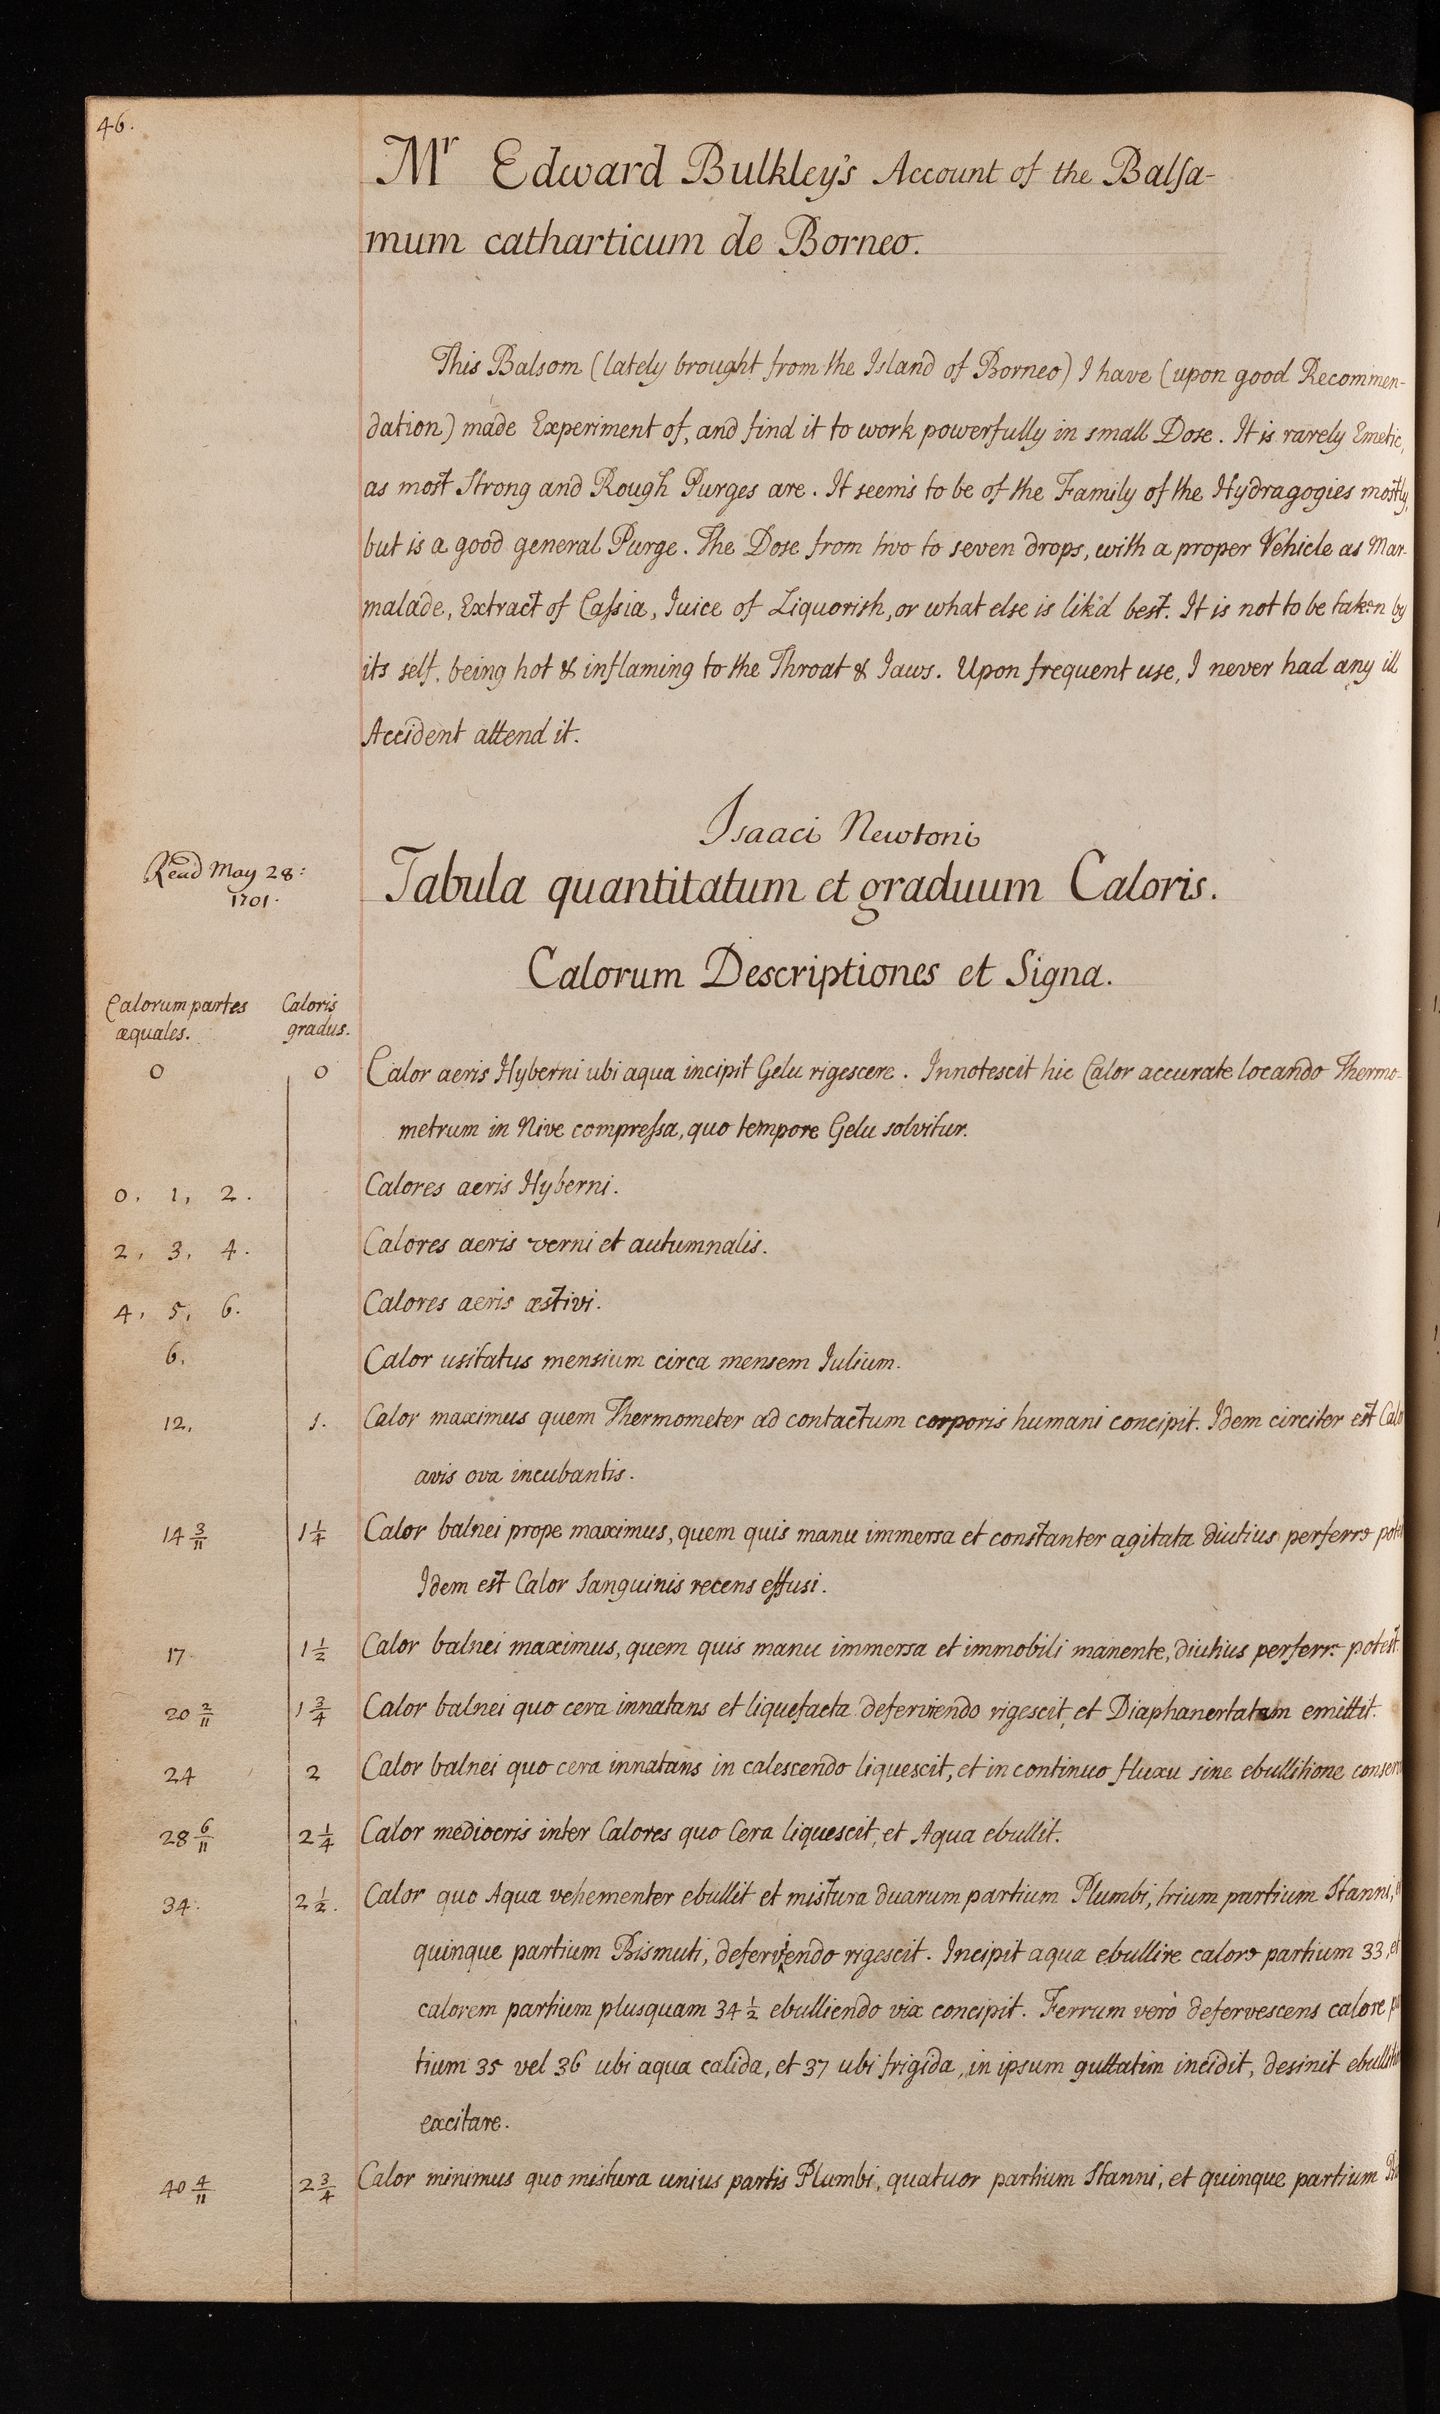 46.
Mr Edward Bulkley's Account of the Balsa-
mum catharticum de Borneo.
This Balsom (lately brought from the Island of Borneo) I have (upon good Recommen-
dation) made Experiment of, and find it to work powerfully in small Dose. It is rarely Emetic,
as most Strong and Rough Purges are. It seems to be of the Family of the Hydragogies mostly,
but is a good general Purge. The Dose from two to seven drops, with a proper Vehicle as Mar-
malade, Extract of Cassia, Juice of Liquorish, or what else is lik'd best. It is not to be taken by
its self, being hot & inflaming to the Throat & Jaws. Upon frequent use, I never had any ill
Accident attend it.
Isaaci Newtoni
Read May 28:
1701.
Tabula quantitatum et graduum Caloris.
Calorum Descriptiones et Signa.
Calorum partes Caloris
æquales. gradus.
0 0 Calor aeris Hyberni ubi aqua incipit Gelu rigescere. Innotescit hic Calor accurate locando Thermo-
metrum in Nive compressa, quo tempore Gelu solvitur.
0, 1, 2. Calores aeris Hyberni.
2, 3, 4. Calores aeris verni et autumnalis.
4, 5, 6. Calores aeris æstivi.
6. Calor usitatus mensium circa mensem Iulium.
12. 1. Calor maximus quem Thermometer ad contactum corporis humani concipit. Idem circiter est
avis ova incubantis.
14 3/11 1 1/4 Calor balnei prope maximus, quem quis manu immersa et constanter agitata diutius perferre
Idem est Calor Sanguinis recens effusi.
17. 1 1/2 Calor balnei maximus, quem quis manu immersa et immobili manente, diutius perferre potest.
20 2/11 1 3/4 Calor balnei quo cera innatans et liquefacta deferviendo rigescit, et emittit.
24 2 Calor balnei quo cera innatans in calescendo liquescit, et in continuo fluxu sine ebullitione
28 6/11 2 1/4 Calor mediocris inter Calores quo Cera liquescit, et Aqua ebullit.
34. 2 1/2. Calor quo Aqua vehementer ebullit et mistura duarum partium Plumbi, trium partium Stanni,
quinque partium Bismuti, deferviendo rigescit. Incipit aqua ebullire calore partium 33, et
calorem partium plusquam 34 1/2 ebulliendo vix concipit. Ferrum verò defervescens calore
tium 35 vel 36 ubi aqua calida, et 37 ubi frigida, in ipsum guttatim incidit, desinit
excitare.
40 4/11 2 3/4 Calor minimus quo mistura unius partis Plumbi, quatuor partium Stanni, et quinque partium